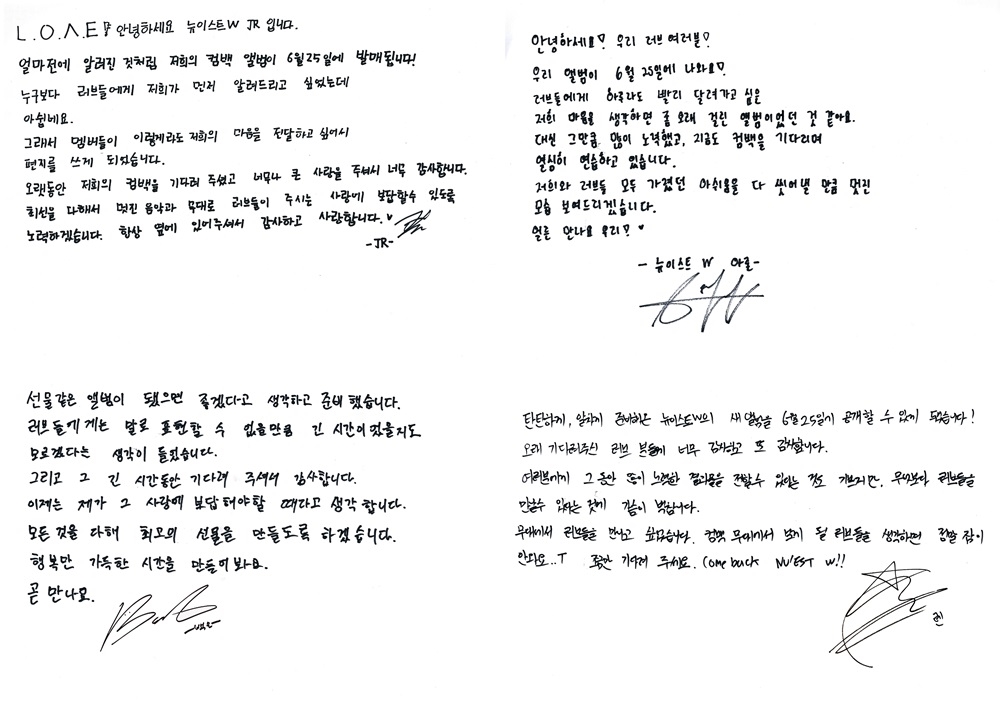 L.O.Λ.E 안녕하세요 뉴이스트W JR 입니다.
얼마전에 알려진 것처럼 저희의 컴백 앨범이 6월25일에 발매됩니다!
누구보다 러브들에게 저희가 먼저 알려드리고 싶었는데
아쉽네요.
그래서 멤버들이 이렇게라도 저희의 마음을 전달하고 싶어서
편지를 쓰게 되었습니다.
오랫동안 저희의 컴백을 기다려 주셨고 너무나 큰 사랑을 주셔서 너무 감사합니다.
최선을 다해서 멋진 음악과 무대로 러브들이 주시는 사랑에 보답할수 있도록
노력하겠습니다. 항상 옆에 있어주셔서 감사하고 사랑합니다.♥
-JR-
안녕하세요? 우리 러브 여러분?
우리 앨범이 6월 25일에 나와요?
러브들에게 하루라도 빨리 달려가고 싶은
저희 마음을 생각하면 좀 오래 걸린 앨범이었던 것 같아요.
대신 그만큼 많이 노력했고, 지금도 컴백을 기다리며
열심히 연습하고 있습니다.
저희와 러브들 모두 가졌던 아쉬움을 다 씻어낼 만큼 멋진
모습 보여드리겠습니다.
얼른 만나요 우리? ♥
- 뉴이스트 W 아론-
선물같은 앨범이 됐으면 좋겠다고 생각하고 준비했습니다.
러브들에게는 말로 표현할 수 없을만큼 긴 시간이었을지도
모르겠다는 생각이 들었습니다.
그리고 그 긴 시간동안 기다려 주셔서 감사합니다.
이제는 제가 그 사랑에 보답해야할 때라고 생각합니다.
모든것을 다해 최고의 선물을 만들도록 하겠습니다.
행복만 가득한 시간을 만들어 봐요.
곧 만나요.
-백호-
탄탄하게, 알차게 준비하온 뉴이스트W의 새 앨범을 6월25일에 공개할 수 있게 되었습니다!
오래 기다려주신 러브 분들께 너무 감사하고 또 감사합니다.
여러분에게 그 동안 많이 노력한 결과물을 전할수 있다는 것도 기쁘지만, 무엇보다 러브들을
만날수 있다는 것에 가슴이 벅찹니다.
무대에서 러브들을 만나고 싶습니다. 컴백 무대에서 보게 될 러브들을 생각하면 정말 잠이
안와요..T 조금만 기다려 주세요. Come back NU'EST W!!
렌